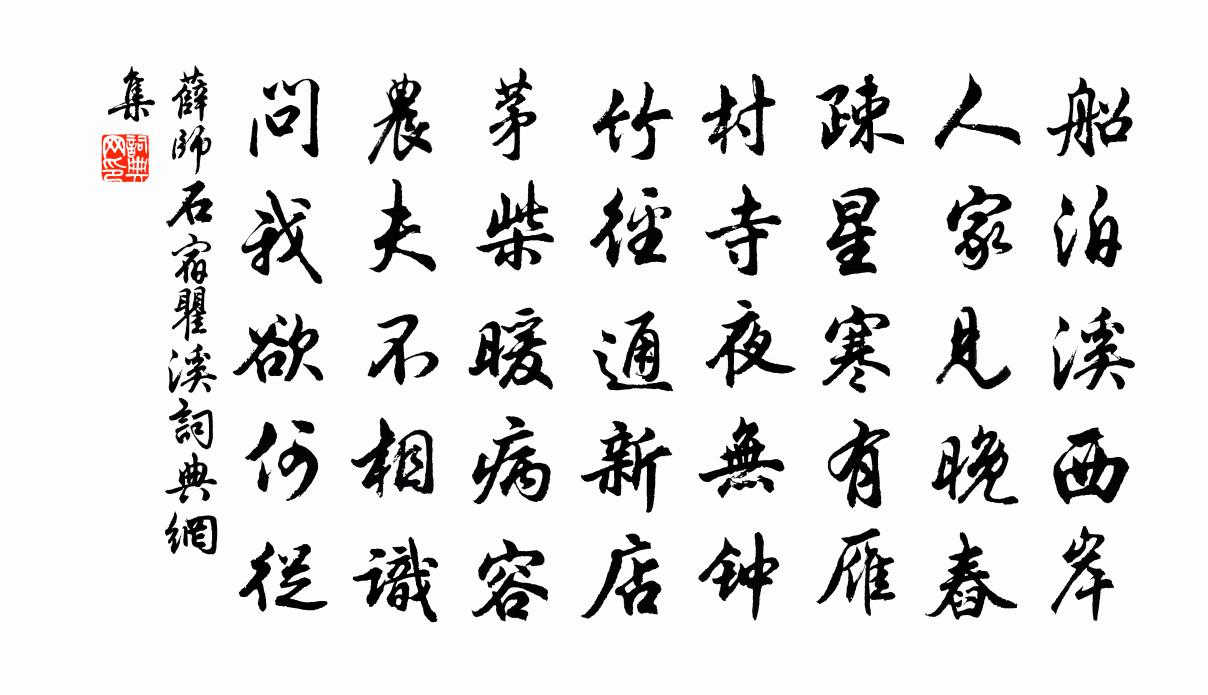 船泊溪西岸
人家見晚舂
疎星寒有雁
村寺夜無钟
竹徑通新店
茅柴暖病容
農夫不相識
問我欲何從
薛師石宿瞿溪詞典網
集
詞典网印